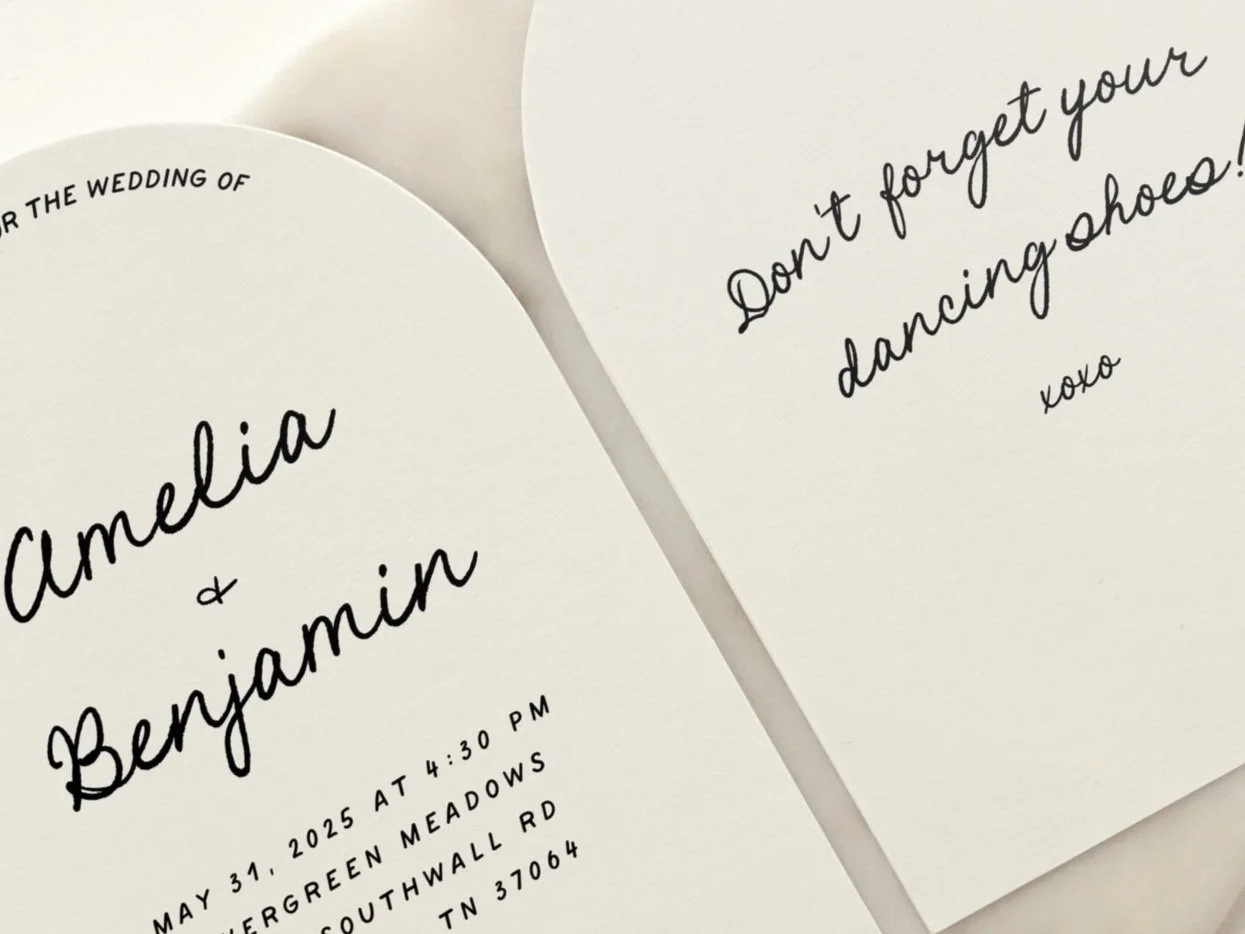 THE WEDDING OF
Amelia
&
Benjamin
MAY 31, 2025 AT 4:30 PM
MEADOWS
SOUTHWALL RD
TN 37064
Don't forget your
dancing shoes!
xoxo